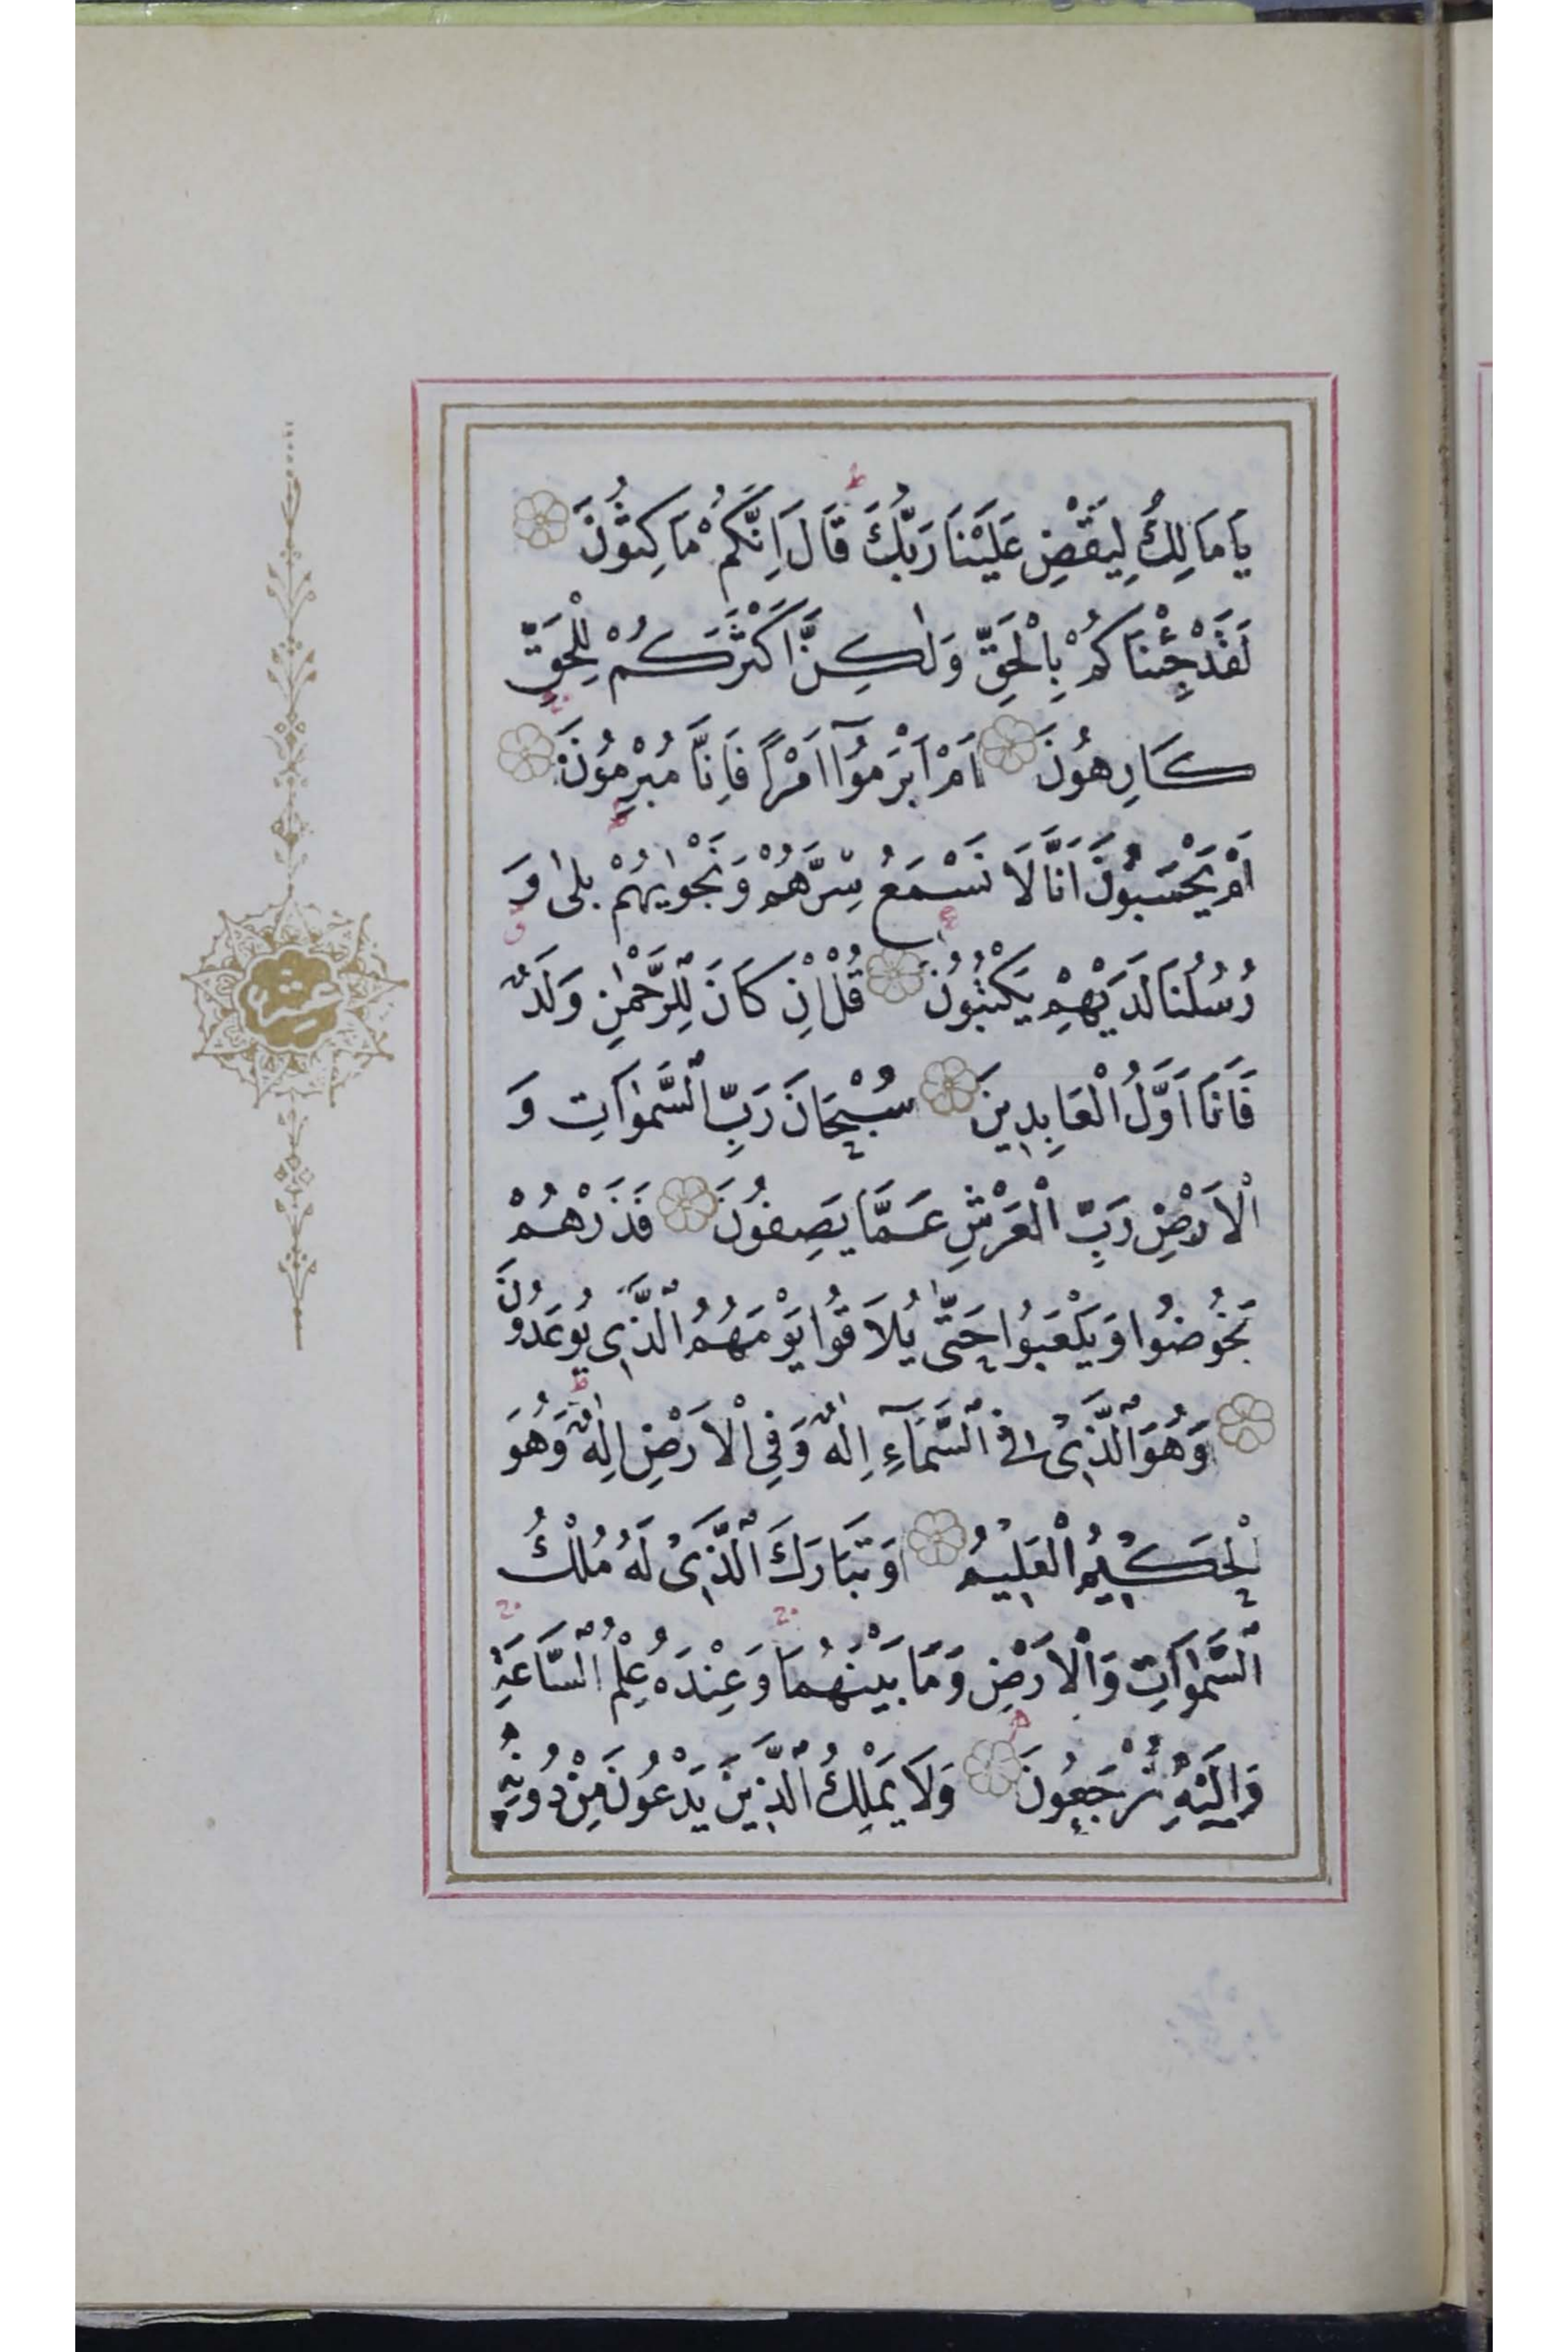 يَا مَالِكُ لِيَقْضِ عَلَيْنَا رَبُّكَ قَالَ اِنَّكُمْ مَاكِثُونَ
لَقَدْ جِئْنَاكُمْ بِالْحَقِّ وَلٰكِنَّ اَكْثَرَكُمْ لِلْحَقِّ
كَارِهُونَ اَمْ اَبْرَمُوٓا اَمْرًا فَاِنَّا مُبْرِمُونَ
اَمْ يَحْسَبُونَ اَنَّا لَا نَسْمَعُ سِرَّهُمْ وَنَجْوٰيهُمْ بَلٰى وَ
رُسُلُنَا لَدَيْهِمْ يَكْتُبُونَ قُلْ اِنْ كَانَ لِلرَّحْمٰنِ وَلَدٌ
فَاَنَا اَوَّلُ الْعَابِدِينَ سُبْحَانَ رَبِّ السَّمٰوَاتِ وَ
الْاَرْضِ رَبِّ الْعَرْشِ عَمَّا يَصِفُونَ فَذَرْهُمْ
يَخُوضُوا وَيَلْعَبُوا حَتّٰى يُلَاقُوا يَوْمَهُمُ الَّذِى يُوعَدُونَ
وَهُوَ الَّذِى فِى السَّمَآءِ اِلٰهٌ وَفِى الْاَرْضِ اِلٰهٌ وَهُوَ
الْحَكِيمُ الْعَلِيمُ وَتَبَارَكَ الَّذِى لَهُ مُلْكُ
السَّمٰوَاتِ وَالْاَرْضِ وَمَا بَيْنَهُمَا وَعِنْدَهُ عِلْمُ السَّاعَةِ
وَاِلَيْهِ تُرْجَعُونَ وَلَا يَمْلِكُ الَّذِينَ يَدْعُونَ مِنْ دُونِهِ
عشر